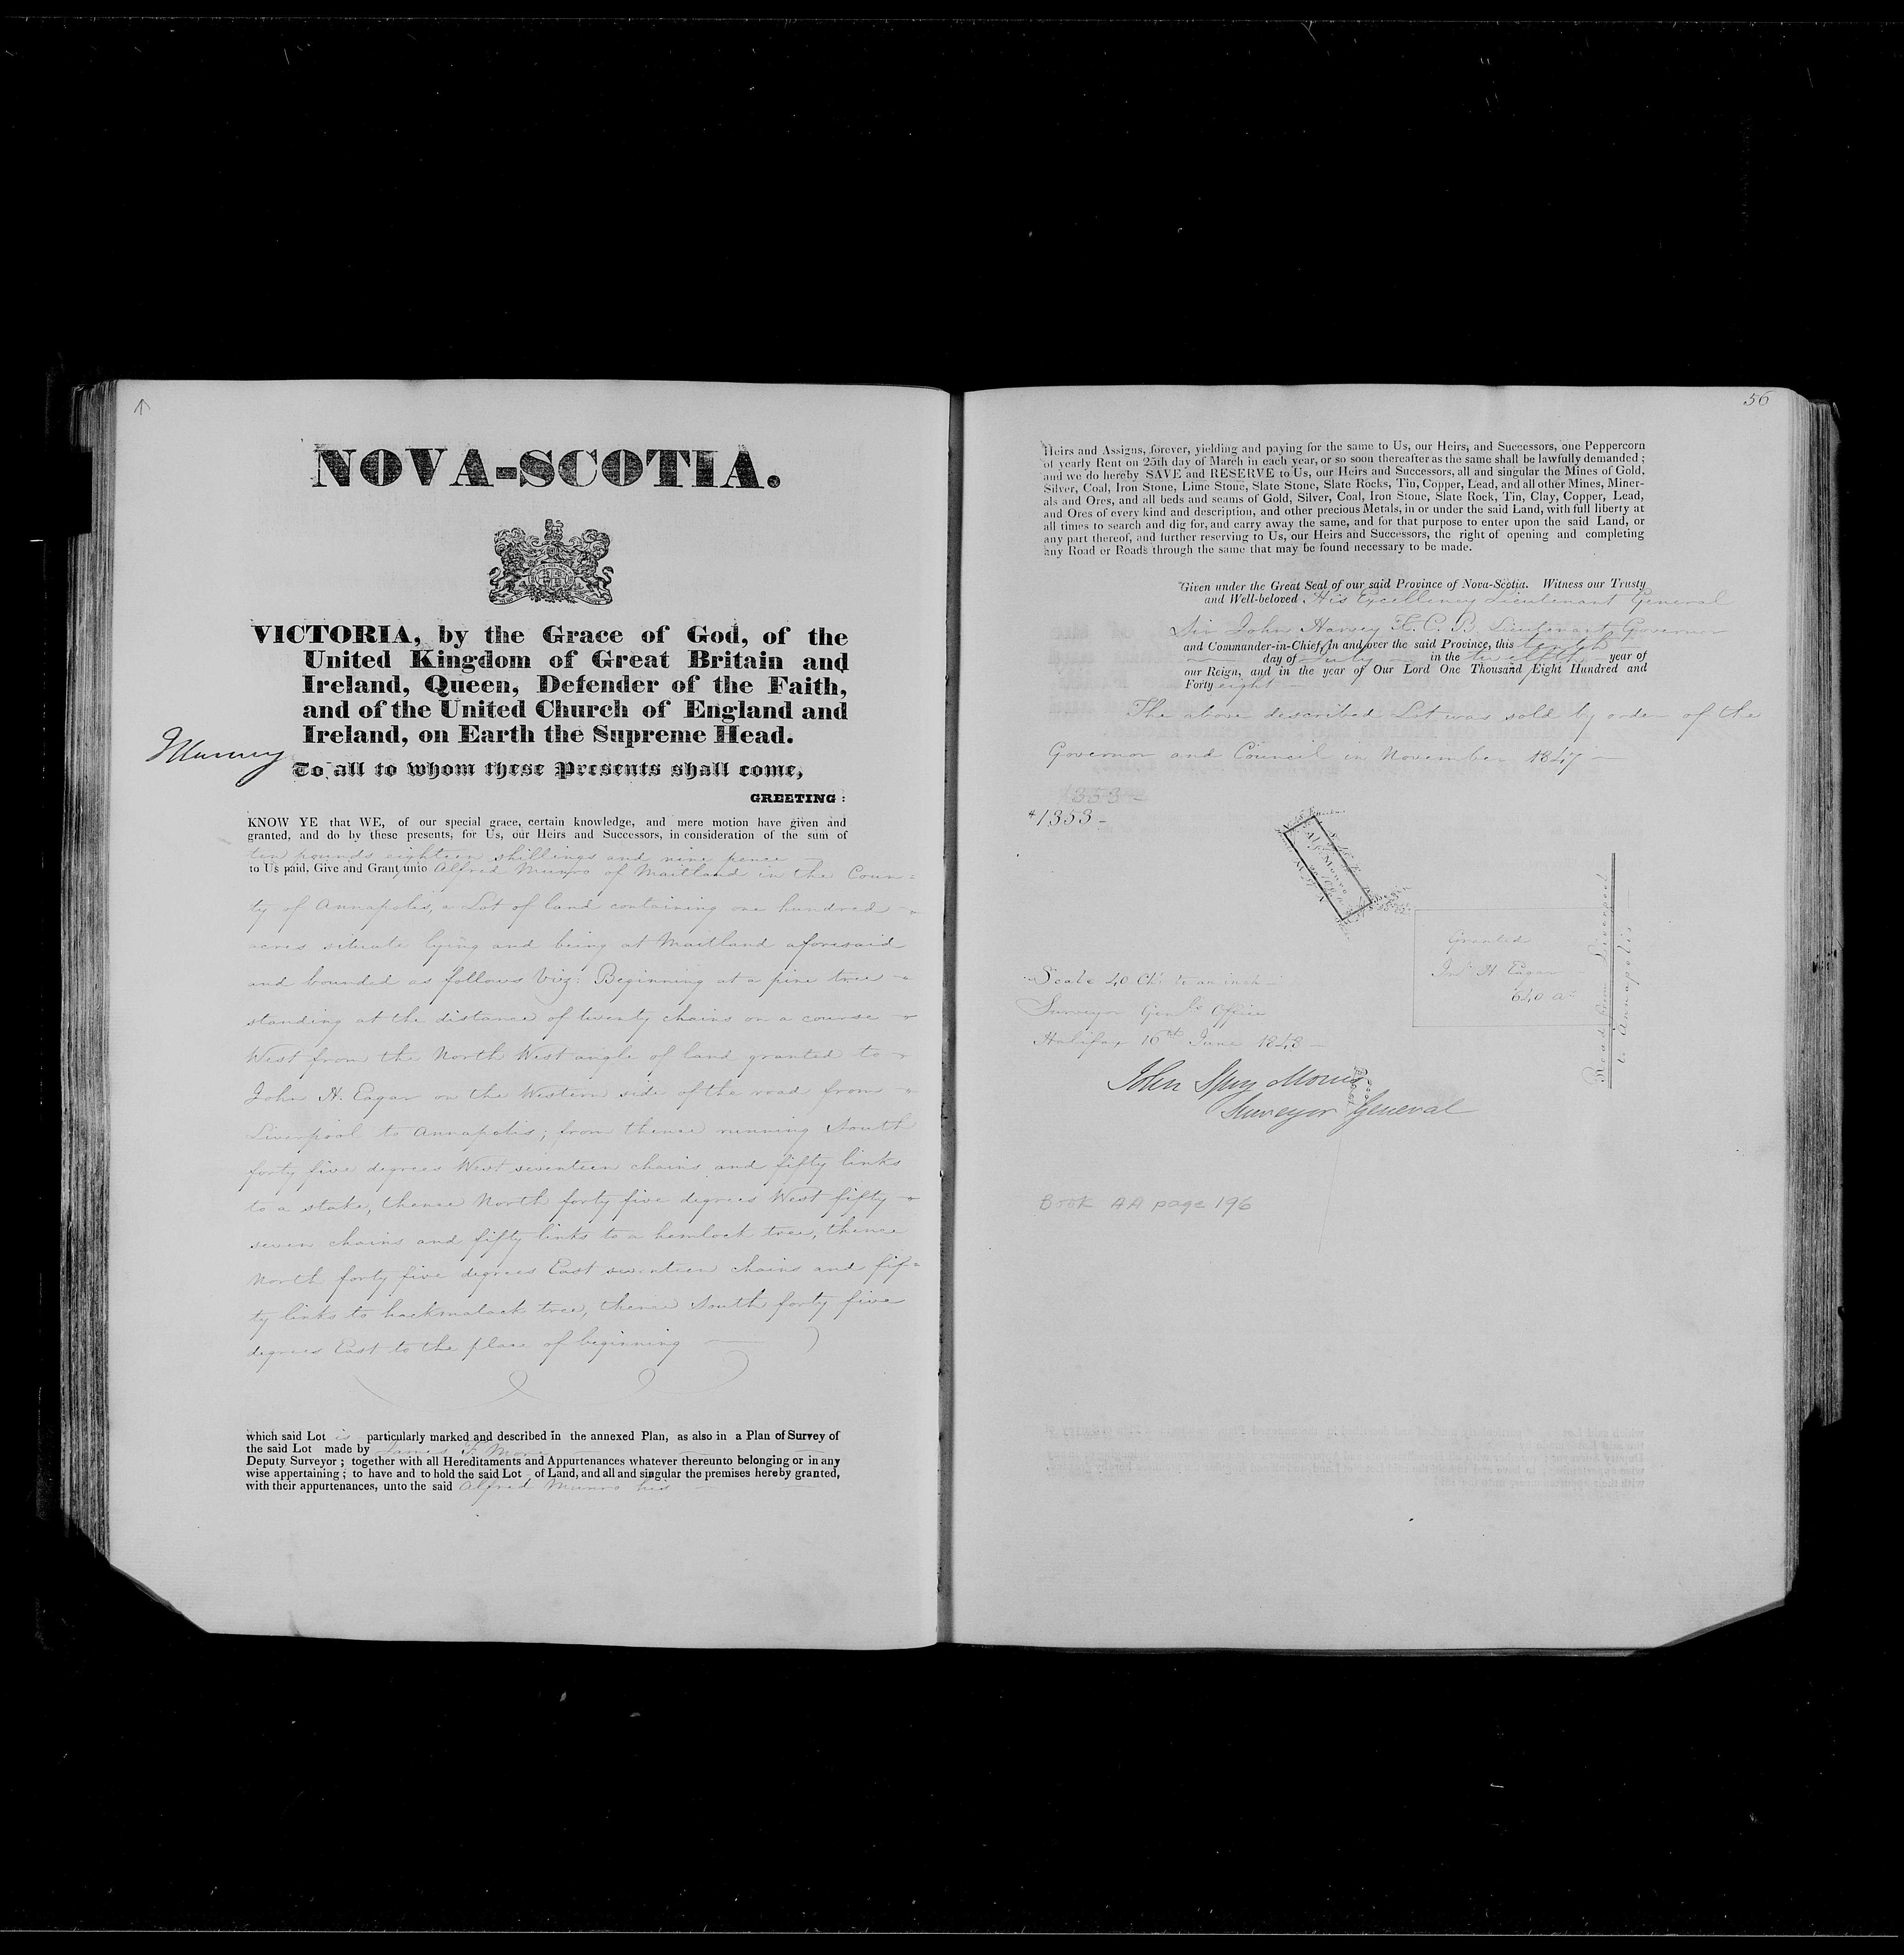 NOVA-SCOTIA.
VICTORIA, by the Grace of God, of the
United Kingdom of Great Britain and
Ireland, Queen, Defender of the Faith,
and of the United Church of England and
Ireland, on Earth the Supreme Head.
To all to whom these Presents shall come,
GREETING:
KNOW YE that WE, of our special grace, certain knowledge, and mere motion have given and
granted, and do by these presents, for Us, our Heirs and Successors, in consideration of the sum of
ten pounds eighteen shillings and nine pence
to Us paid, Give and Grant unto Alfred Munro of Maitland in the Coun=
ty of Annapolis, a Lot of land containing one hundred
acres situate lying and being at Maitland aforesaid
and bounded as follows Viz: Beginning at a pine tree
standing at the distance of twenty chains on a course
West from the North West angle of land granted to
John H. Eagar on the Western side of the road from
Liverpool to Annapolis; from thence running South
forty five degrees West seventeen chains and fifty links
to a stake, thence North forty five degrees West fifty
seven chains and fifty links to a hemlock tree, thence
North forty five degrees East seventeen chains and fif=
ty links to hackmalack tree, thence South forty five
degrees East to the place of beginning
which said Lot is particularly marked and described in the annexed Plan, as also in a Plan of Survey of
the said Lot made by James F. More
Deputy Surveyor; together with all Hereditaments and Appurtenances whatever thereunto belonging or in any
wise appertaining; to have and to hold the said Lot of Land, and all and singular the premises hereby granted,
with their appurtenances, unto the said Alfred Munro his
56
Heirs and Assigns, forever, yielding and paying for the same to Us, our Heirs, and Successors, one Peppercorn
of yearly Rent on 25th day of March in each year, or so soon thereafter as the same shall be lawfully demanded;
and we do hereby SAVE and RESERVE to Us, our Heirs and Successors, all and singular the Mines of Gold,
Silver, Coal, Iron Stone, Lime Stone, Slate Stone, Slate Rocks, Tin, Copper, Lead, and all other Mines, Miner-
als and Ores, and all beds and seams of Gold, Silver, Coal, Iron Stone, Slate Rock, Tin, Clay, Copper, Lead,
and Ores of every kind and description, and other precious Metals, in or under the said Land, with full liberty at
all times to search and dig for, and carry away the same, and for that purpose to enter upon the said Land, or
any part thereof, and further reserving to Us, our Heirs and Successors, the right of opening and completing
any Road or Roads through the same that may be found necessary to be made.
Given under the Great Seal of our said Province of Nova-Scotia. Witness our Trusty
and Well-beloved His Excellency Lieutenant General
Sir John Harvey K. C. B. Lieutenant Governor
and Commander-in-Chief, in and over the said Province, this tenth
day of July in the twelfth year of
our Reign, and in the year of Our Lord One Thousand Eight Hundred and
Forty eight
The above described Lot was sold by order of the
Governor and Council in November 1847
1353
Alf. Munro
Granted
Jno. H. Eagar
640 as
Road from Liverpool
to Annapolis
Scale 40 Chs to an inch
Surveyor Genls Office
Halifax 16th June 1848
John Spry Morris
Surveyor General
Book AA page 196